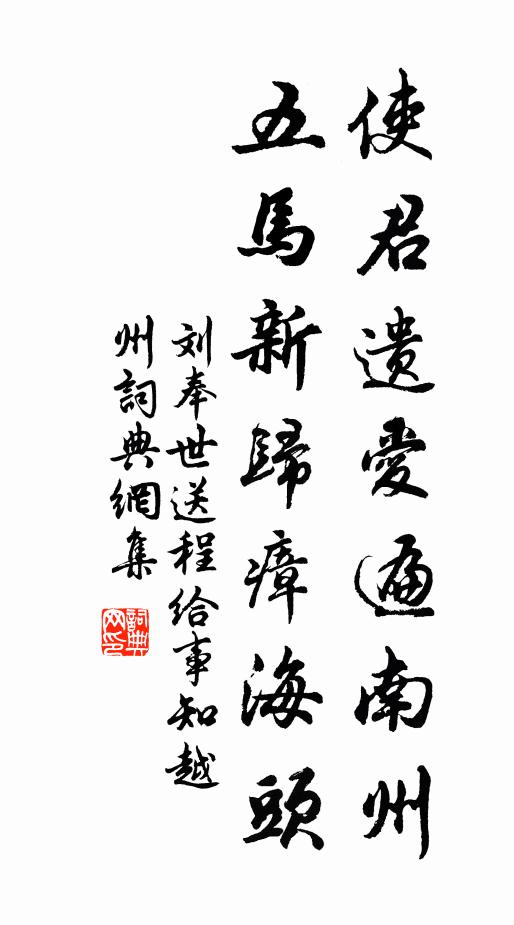 使君遺愛遍南州
五馬新歸瘴海頭
刘奉世送程给事知越
州詞典網集
詞典
网印